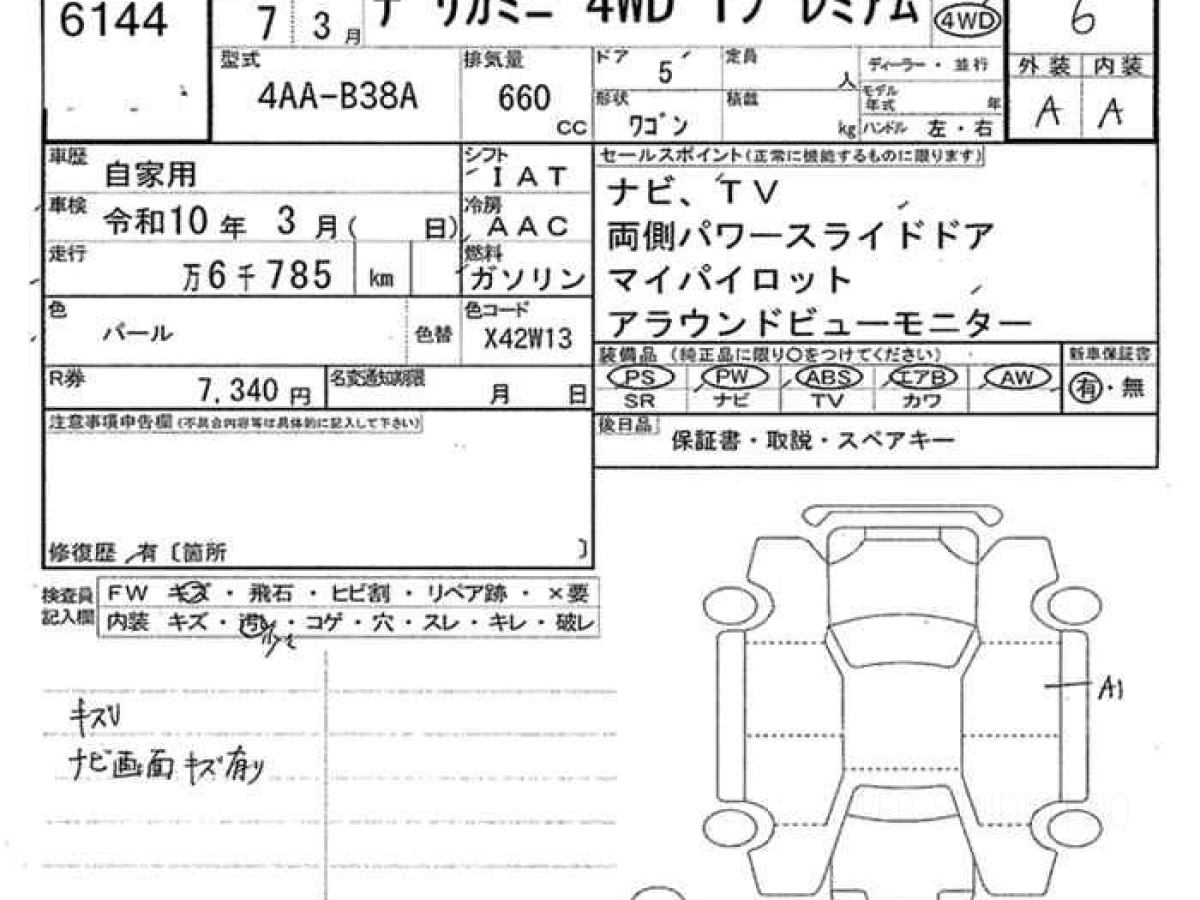 6144
7 3 月
デリカミニ 4WD Tプレミアム
4WD
6
型式
4AA-B38A
排気量
660
CC
ドア 5
定員 人
形状
ワゴン
積載 kg
ディーラー・並行
モデル年式 年
ハンドル 左・右
外装 内装
A A
車歴 自家用
シフト
IAT
車検 令和10年 3月( 日)
冷房
AAC
走行
万6千785 km
燃料
ガソリン
色 パール
色替
色コード
X42W13
R券 7,340円
名変通知期限 月 日
セールスポイント(正常に機能するものに限ります)
ナビ、TV
両側パワースライドドア
マイパイロット
アラウンドビューモニター
装備品 (純正品に限り〇をつけてください)
PS PW ABS エアB AW
SR ナビ TV カワ
新車保証書
有・無
後日品 保証書・取説・スペアキー
注意事項申告欄(不具合内容等は具体的に記入して下さい)
修復歴 有〔箇所 〕
検査員記入欄
FW キズ・飛石・ヒビ割・リペア跡・×要
内装 キズ・汚レ・コゲ・穴・スレ・キレ・破レ
キズU
ナビ画面キズ有り
A1